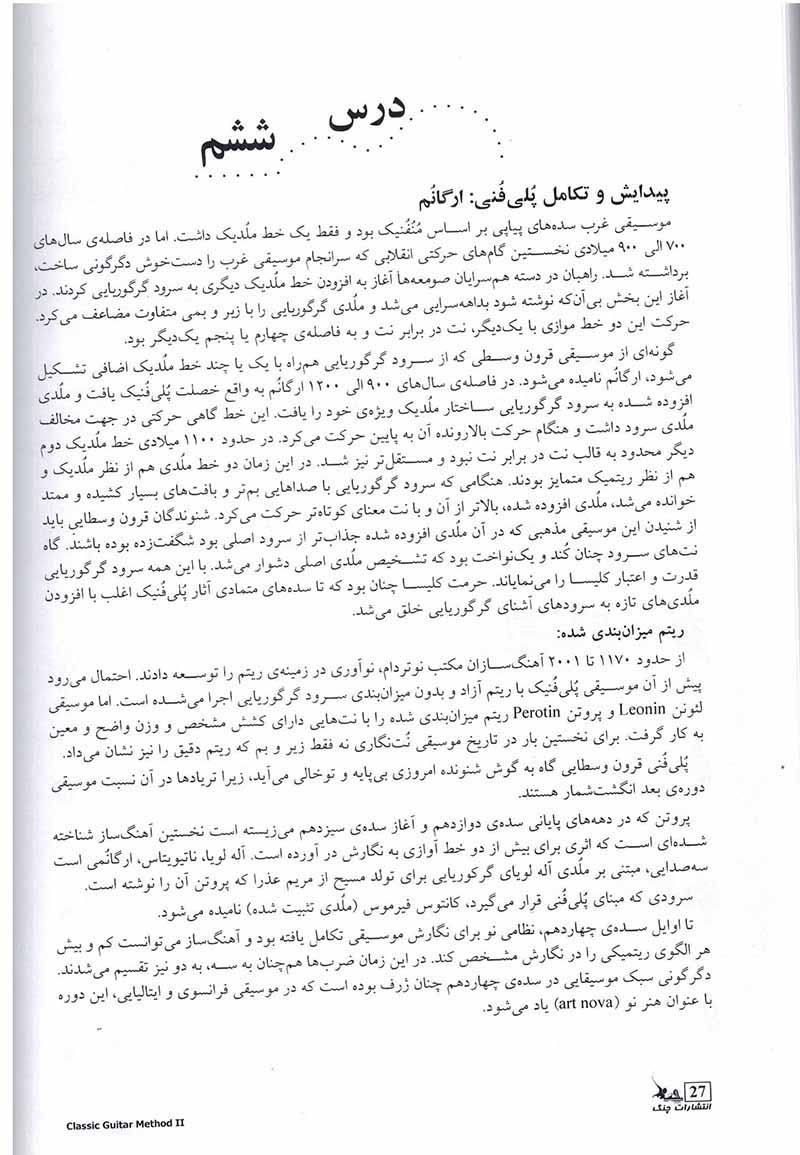 درس
ششم
پیدایش و تکامل پُلی‌فُنی: ارگانُم
موسیقی غرب سده‌های پیاپی بر اساس مُنُفُنیک بود و فقط یک خط ملُدیک داشت. اما در فاصله‌ی سال‌های
۷۰۰ الی ۹۰۰ میلادی نخستین گام‌های حرکتی انقلابی که سرانجام موسیقی غرب را دست‌خوش دگرگونی ساخت،
برداشته شد. راهبان در دسته هم‌سرایان صومعه‌ها آغاز به افزودن خط ملُدیک دیگری به سرود گرگوریایی کردند. در
آغاز این بخش بی‌آن‌که نوشته شود بداهه‌سرایی می‌شد و ملُدی گرگوریایی را با زیر و بمی متفاوت مضاعف می‌کرد.
حرکت این دو خط موازی با یک‌دیگر، نت در برابر نت و به فاصله‌ی چهارم یا پنجم یک‌دیگر بود.
گونه‌ای از موسیقی قرون وسطی که از سرود گرگوریایی هم‌راه با یک یا چند خط ملُدیک اضافی تشکیل
می‌شود، ارگانُم نامیده می‌شود. در فاصله‌ی سال‌های ۹۰۰ الی ۱۲۰۰ ارگانُم به واقع خصلت پُلی‌فُنیک یافت و ملُدی
افزوده شده به سرود گرگوریایی ساختار ملُدیک ویژه‌ی خود را یافت. این خط گاهی حرکتی در جهت مخالف
ملُدی سرود داشت و هنگام حرکت بالارونده آن به پایین حرکت می‌کرد. در حدود ۱۱۰۰ میلادی خط ملُدیک دوم
دیگر محدود به قالب نت در برابر نت نبود و مستقل‌تر نیز شد. در این زمان دو خط ملُدی هم از نظر ملُدیک و
هم از نظر ریتمیک متمایز بودند. هنگامی که سرود گرگوریایی با صداهایی بم‌تر و بافت‌های بسیار کشیده و ممتد
خوانده می‌شد، ملُدی افزوده شده، بالاتر از آن و با نت معنای کوتاه‌تر حرکت می‌کرد. شنوندگان قرون وسطایی باید
از شنیدن این موسیقی مذهبی که در آن ملُدی افزوده شده جذاب‌تر از سرود اصلی بود شگفت‌زده بوده باشند. گاه
نت‌های سرود چنان کُند و یک‌نواخت بود که تشخیص ملُدی اصلی دشوار می‌شد. با این همه سرود گرگوریایی
قدرت و اعتبار کلیسا را می‌نمایاند. حرمت کلیسا چنان بود که تا سده‌های متمادی آثار پُلی‌فُنیک اغلب با افزودن
ملُدی‌های تازه به سرودهای آشنای گرگوریایی خلق می‌شد.
ریتم میزان‌بندی شده:
از حدود ۱۱۷۰ تا ۲۰۰۱ آهنگ‌سازان مکتب نوتردام، نوآوری در زمینه‌ی ریتم را توسعه دادند. احتمال می‌رود
پیش از آن موسیقی پُلی‌فُنیک با ریتم آزاد و بدون میزان‌بندی سرود گرگوریایی اجرا می‌شده است. اما موسیقی
لئونن Leonin و پروتن Perotin ریتم میزان‌بندی شده را با نت‌هایی دارای کشش مشخص و وزن واضح و معین
به کار گرفت. برای نخستین بار در تاریخ موسیقی نُت‌نگاری نه فقط زیر و بم که ریتم دقیق را نیز نشان می‌داد.
پُلی‌فُنی قرون وسطایی گاه به گوش شنونده امروزی بی‌پایه و توخالی می‌آید، زیرا تریادها در آن نسبت موسیقی
دوره‌ی بعد انگشت‌شمار هستند.
پروتن که در دهه‌های پایانی سده‌ی دوازدهم و آغاز سده‌ی سیزدهم می‌زیسته است نخستین آهنگ‌ساز شناخته
شده‌ای است که اثری برای بیش از دو خط آوازی به نگارش در آورده است. آله لویا، ناتیویتاس، ارگانُمی است
سه‌صدایی، مبتنی بر ملُدی آله لویای گرکوریایی برای تولد مسیح از مریم عذرا که پروتن آن را نوشته است.
سرودی که مبنای پُلی‌فُنی قرار می‌گیرد، کانتوس فیرموس (ملُدی تثبیت شده) نامیده می‌شود.
تا اوایل سده‌ی چهاردهم، نظامی نو برای نگارش موسیقی تکامل یافته بود و آهنگ‌ساز می‌توانست کم و بیش
هر الگوی ریتمیکی را در نگارش مشخص کند. در این زمان ضرب‌ها هم‌چنان به سه، به دو نیز تقسیم می‌شدند.
دگرگونی سبک موسیقایی در سده‌ی چهاردهم چنان ژرف بوده است که در موسیقی فرانسوی و ایتالیایی، این دوره
با عنوان هنر نو (art nova) یاد می‌شود.
27
انتشارات چنگ
Classic Guitar Method II